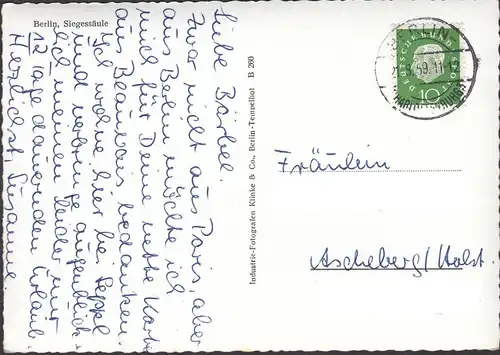 Berlin, Siegessäule
Liebe Bärbel.
Zwar nicht aus Paris, aber
aus Berlin möchte ich
mich für Deine nette Karte
aus Beauvais bedanken.
Ich wohne hier bei Peppl
und verbringe augenblick-
lich meinen leider nur
12 Tage dauernden Urlaub.
Herzlichst, Susanne
Industrie-Fotografen Klinke & Co., Berlin-Tempelhof B 260
BERLIN
59.11
DEUTSCHE BUNDESPOST
10
Fräulein
Ascheberg/Holst.